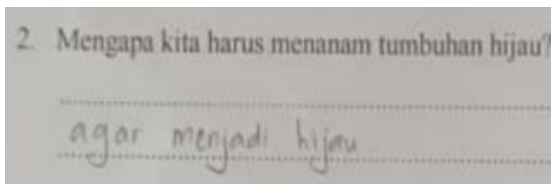 2. Mengapa kita harus menanam tumbuhan hijau?
agar menjadi hijau